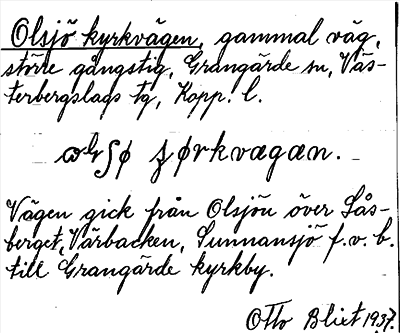 Olsjö kyrkvägen, gammal väg,
större gångstig, Grangärde sn, Väs-
terbergslags tg, Kopp. l.
Vägen gick från Olsjön över Lås-
berget, Värbacken, Sunnansjö f.v.b.
till Grangärde kyrkby.
Otto Blixt 1937.